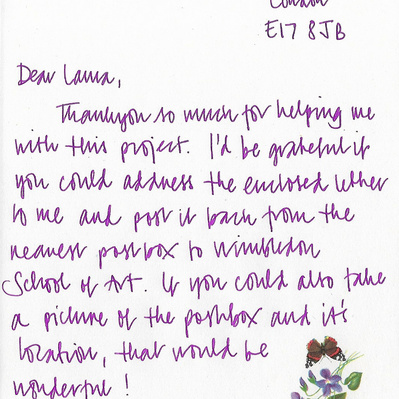 London
E17 8JB
Dear Laura,
Thankyou so much for helping me
with this project. I'd be grateful if
you could address the enclosed letter
to me and post it back from the
nearest postbox to Wimbledon
School of Art. If you could also take
a picture of the postbox and it's
location, that would be
wonderful!